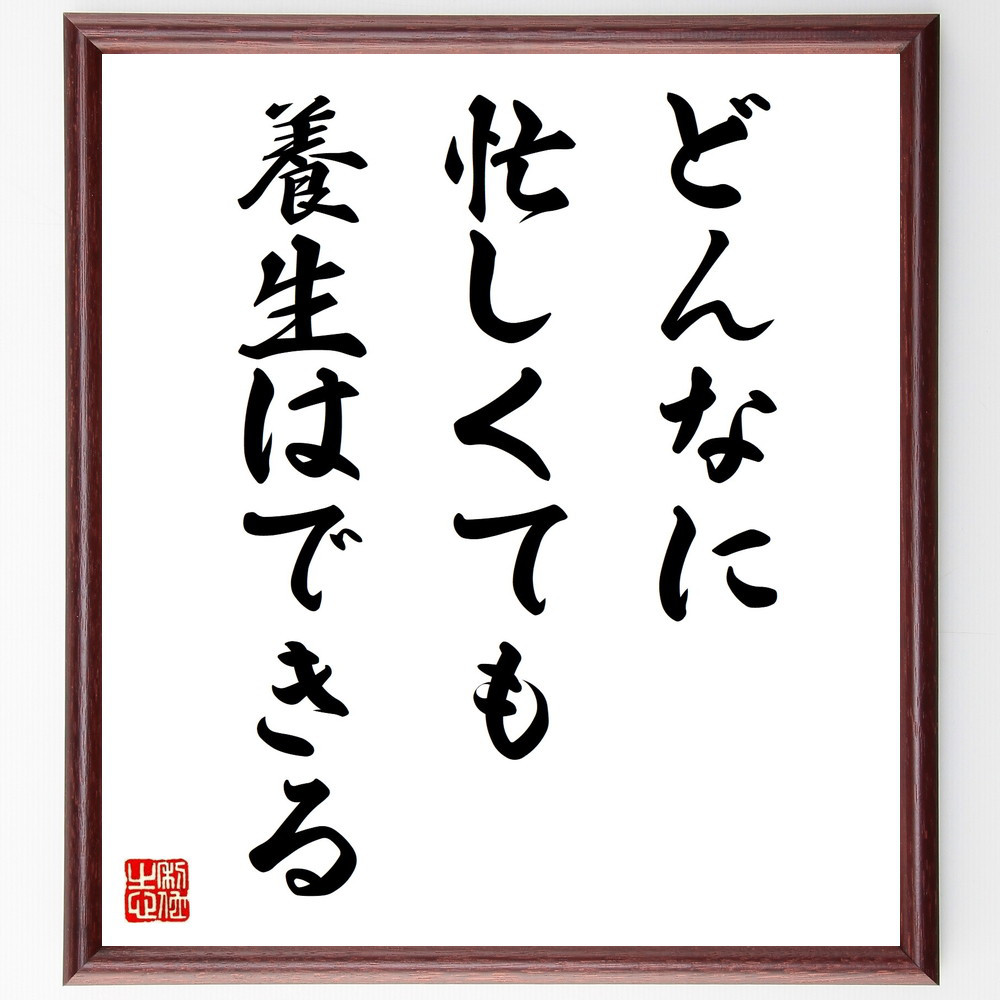 どんなに
忙しくても
養生はできる